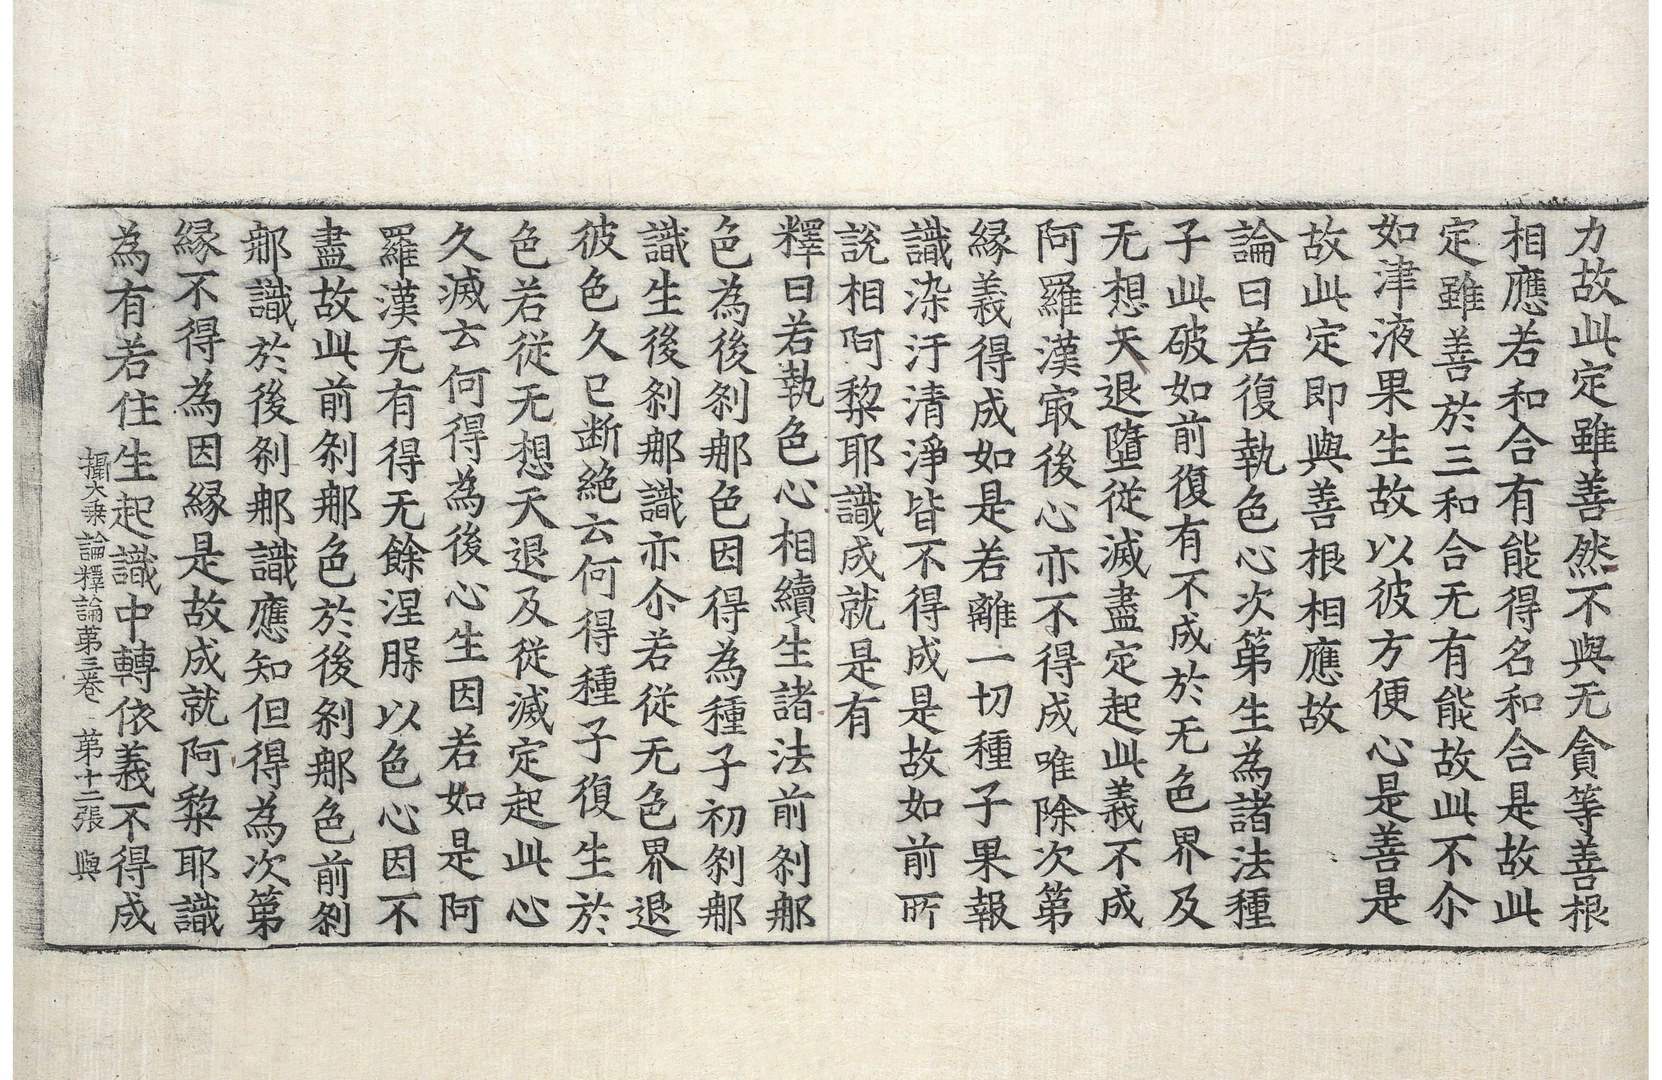 力故此定雖善然不與无貪等善根
相應若和合有能得名和合是故此
定雖善於三和合无有能故此不尒
如津液果生故以彼方便心是善是
故此定即與善根相應故
論曰若復執色心次第生為諸法種
子此破如前復有不成於无色界及
无想天退墮從滅盡定起此義不成
阿羅漢㝡後心亦不得成唯除次第
緣義得成如是若離一切種子果報
識染汙清淨皆不得成是故如前所
說相阿黎耶識成就是有
釋曰若執色心相續生諸法前剎那
色為後剎那色因得為種子初剎那
識生後剎那識亦尒若從无色界退
彼色久已断絕云何得種子復生於
色若從无想天退及從滅定起此心
久滅云何得為後心生因若如是阿
羅漢无有得无餘涅槃以色心因不
盡故此前剎那色於後剎那色前剎
那識於後剎那識應知但得為次第
緣不得為因緣是故成就阿黎耶識
為有若住生起識中轉依義不得成
攝大乘論釋論第三卷 第十二張 與